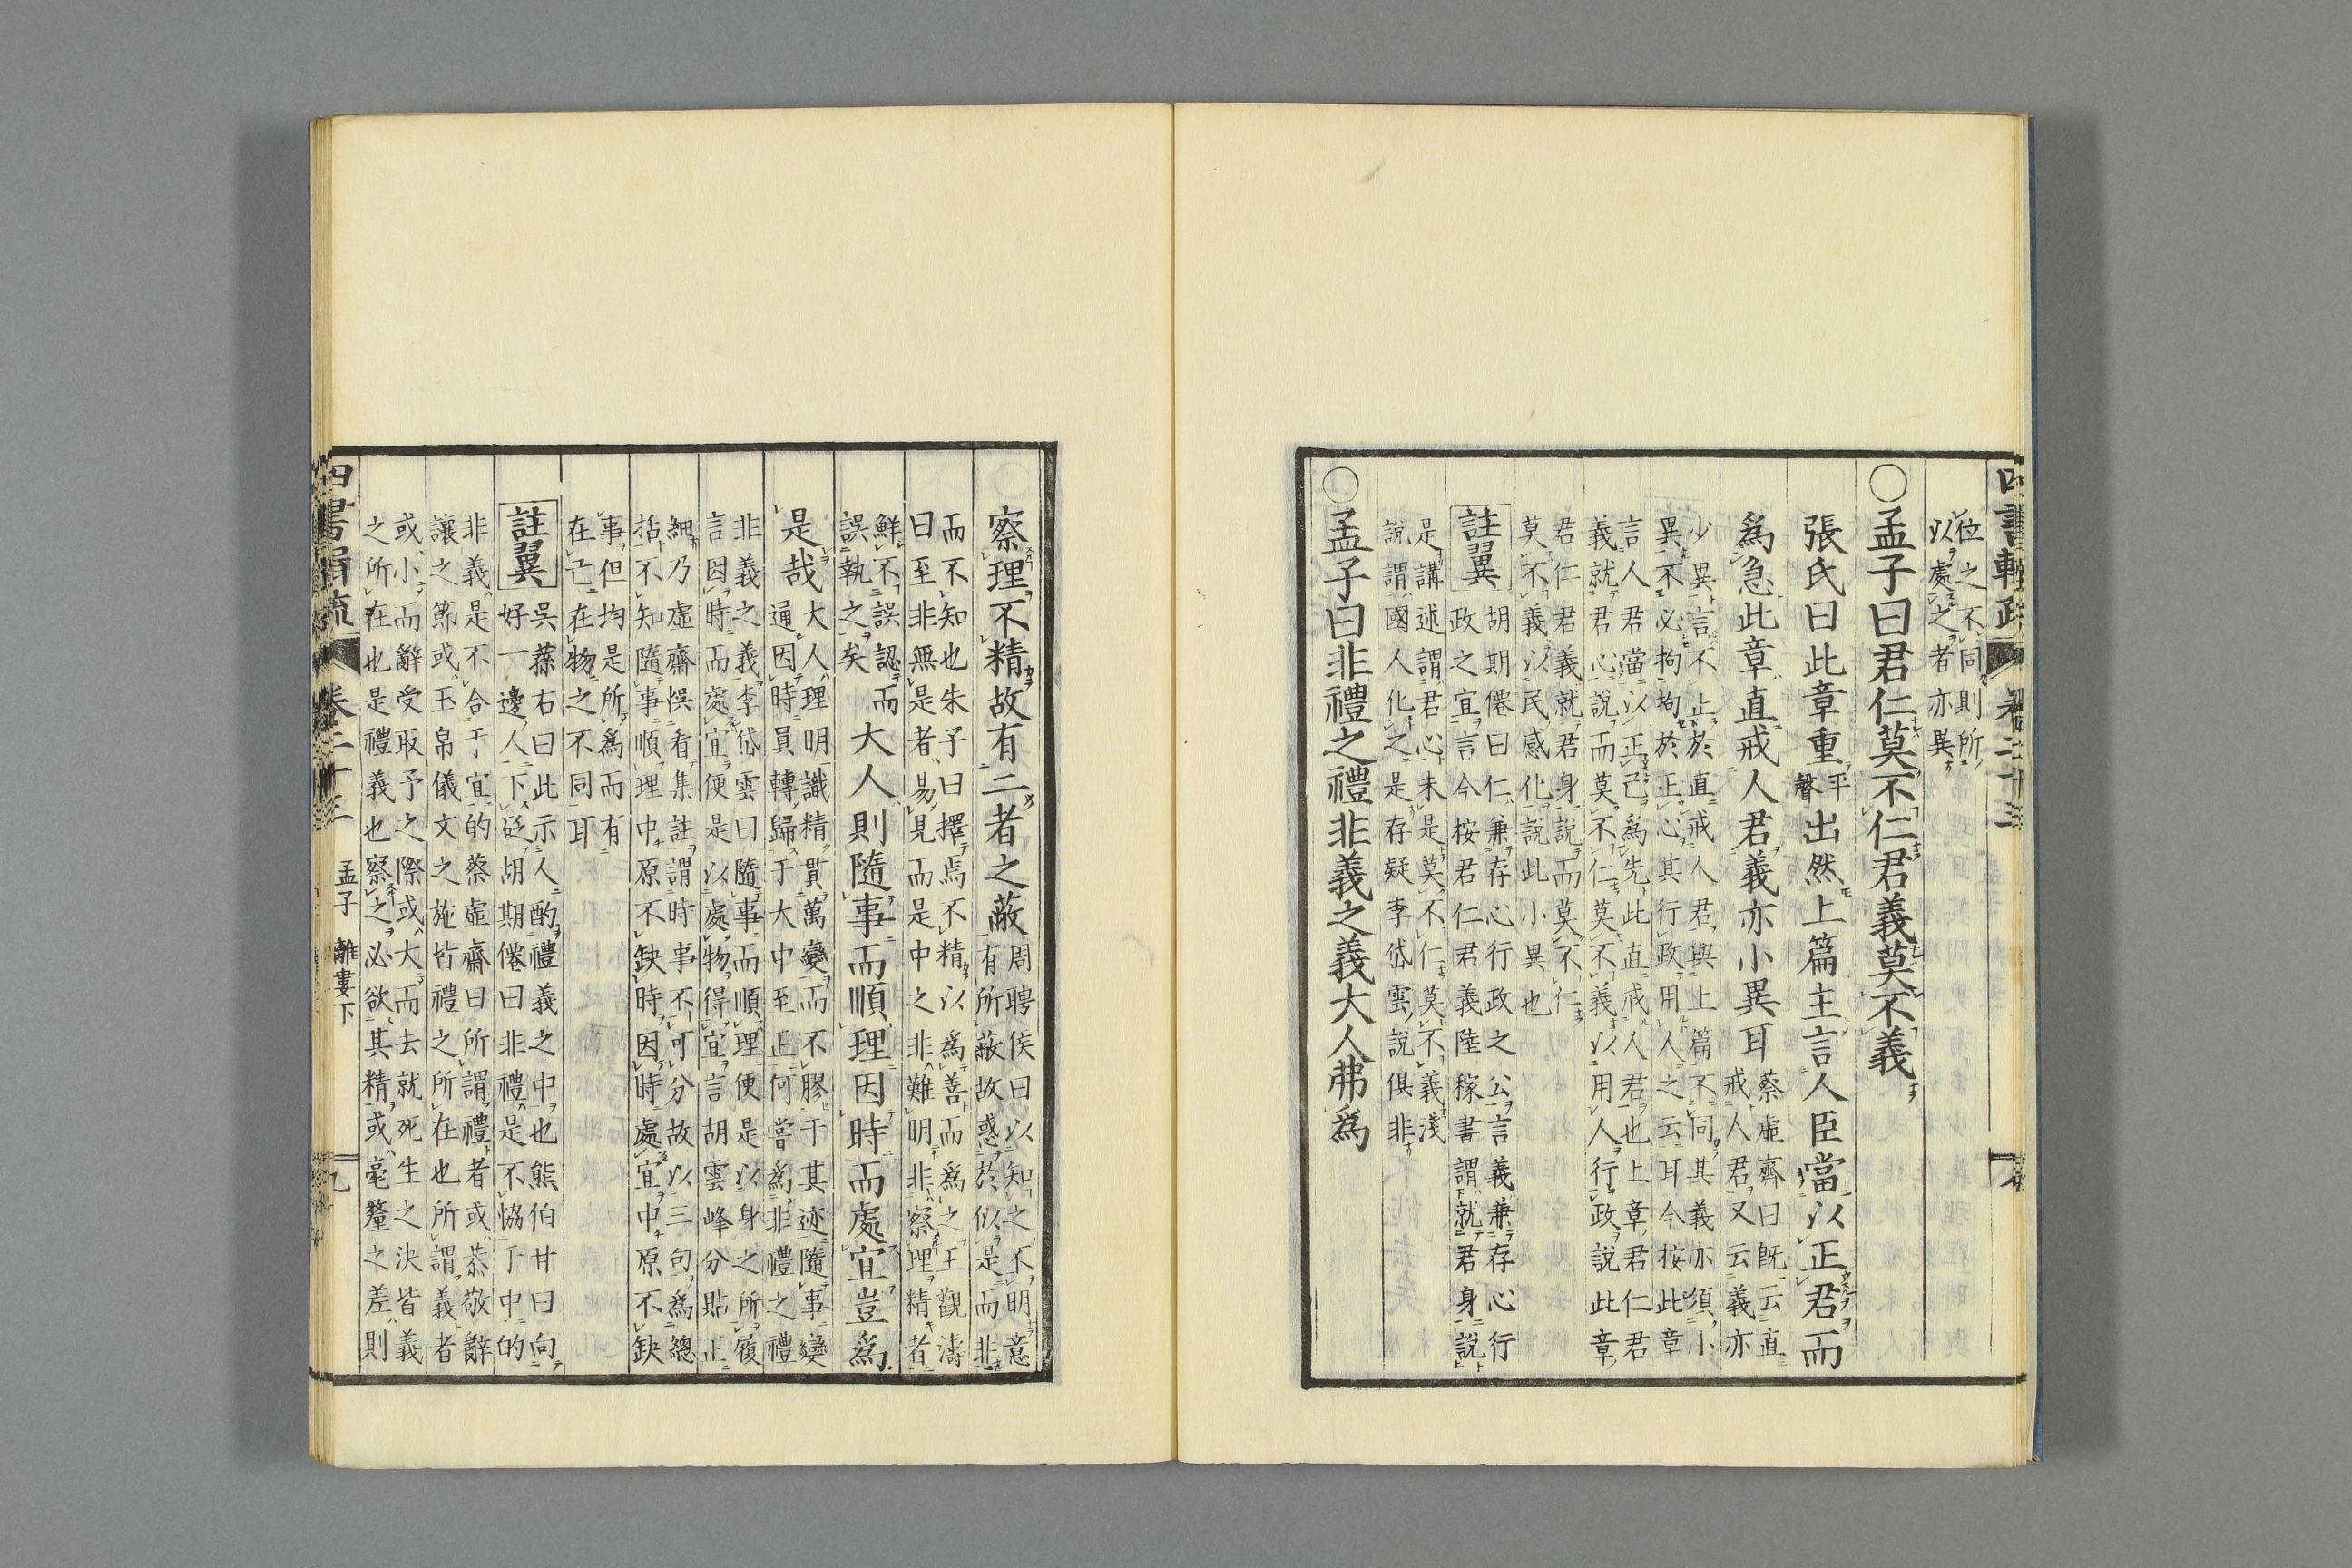 位之不同則所
以處之者亦異
○孟子曰君仁莫不仁君義莫不義
張氏曰此章重平聲出然上篇主言人臣當以正君而
爲急此章直戒人君義亦小異耳蔡虛齋曰既云直
戒人君又云義亦
少異言不止於直戒人君與上篇不同其義亦須小
異不必拘拘於正心其行政用人之云耳今按此章
言人君當以正己爲先此直戒人君也上章君仁君
義就君心說而莫不仁莫不義以用人行政說此章
君仁君義就君身說而莫不仁
莫不義以民感化說此小異也
註翼
胡期僊曰仁兼存心行政之公言義兼存心行
政之宜言今按君仁君義陸稼書謂就君身說
是講述謂君心未是莫不仁莫不義淺
說謂國人化之是存疑李岱雲說俱非
○孟子曰非禮之禮非義之義大人弗爲
察理不精故有二者之蔽周聘侯曰以知之不明意
有所蔽故惑於似是而非
而不知也朱子曰擇焉不精以爲善而爲之王觀濤
曰至非無是者易見而是中之非難明非察理精者
鮮不誤認而
誤執之矣
大人則隨事而順理因時而處宜豈爲
是哉大人理明識精貫萬變而不膠于其迹隨事變
通因時員轉歸于大中至正何嘗爲非禮之禮
非義之義李岱雲曰隨事而順理便是以身之所履
言因時而處宜便是以處物得宜言胡雲峰分貼正
細乃虛齋悞看集註謂時事不可分故以三句爲總
括不知隨事順理中原不缺時因時處宜中原不缺
事但均是所爲而有
在己在物之不同耳
註翼
吳蓀右曰此示人酌禮義之中也熊伯甘曰向
好一邊人下砭胡期僊曰非禮是不恊于中的
非義是不合于宜的蔡虛齋曰所謂禮者或恭敬辭
讓之節或玉帛儀文之施皆禮之所在也所謂義者
或小而辭受取予之際或大而去就死生之決皆義
之所在也是禮義也察之必欲其精或毫釐之差則
卷二十三 孟子 離婁下
九